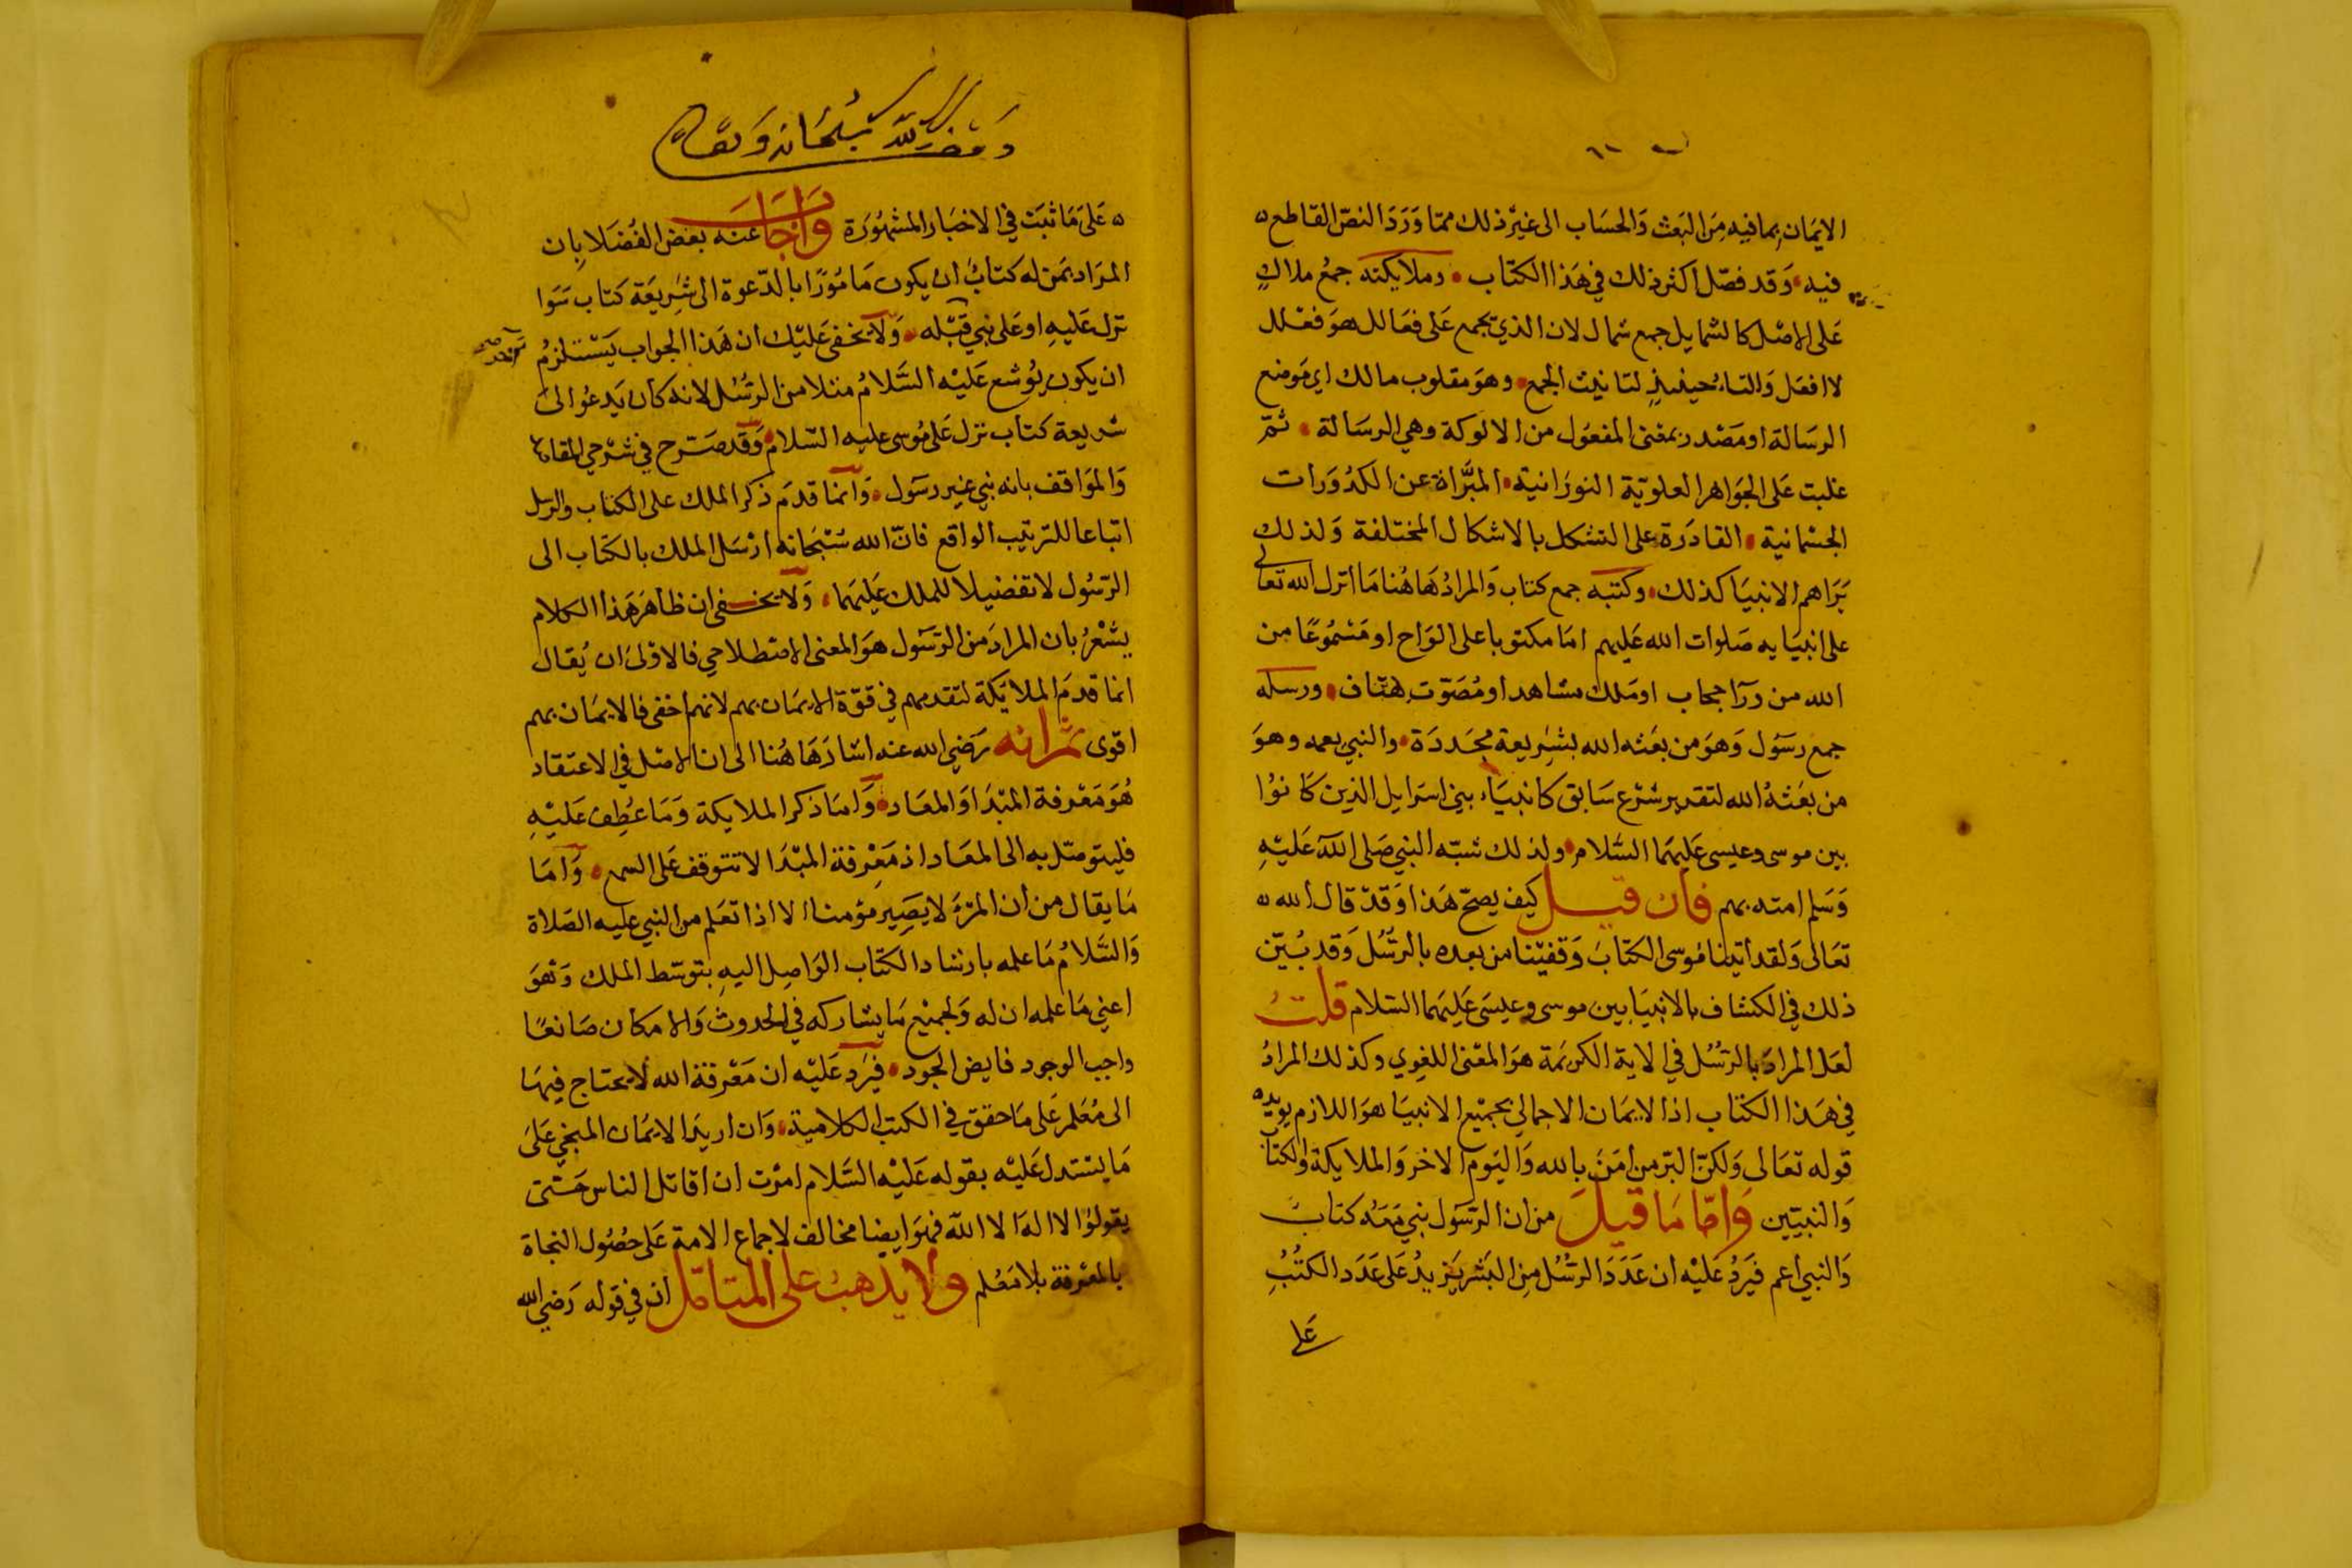 الايمان بما فيه من البعث والحساب الى غير ذلك مما ورد النص القاطع
فيه وقد فصل اكثر ذلك في هذا الكتاب وملايكته جمع ملاك
على الاصل كالشمايل جمع شمال لان الذي يجمع على فعالل هو فعلل
لا افعل والتاء حينيذ لتانيث الجمع وهو مقلوب مالك اي موضع
الرسالة او مصدر بمعنى المفعول من الالوكة وهي الرسالة ثم
غلبت على الجواهر العلوية النورانية المبراة عن الكدورات
الجسمانية القادرة على التشكل بالاشكال المختلفة ولذلك
يراهم الانبيا كذلك وكتبه جمع كتاب والمراد هاهنا ما انزل الله تعالى
على انبيايه صلوات الله عليهم اما مكتوبا على الواح او مسموعا من
الله من ورآ حجاب او ملك مشاهد او مصوت هتاف ورسله
جمع رسول وهو من بعثه الله بشريعة مجددة والنبي يعمه وهو
من بعثه الله لتقرير شرع سابق كانبياء بني اسرايل الذين كانوا
بين موسى وعيسى عليهما السلام ولذلك شبه النبي صلى الله عليه
وسلم امته بهم فان قيل كيف يصح هذا وقد قال الله
تعالى ولقد اتينا موسى الكتاب وقفينا من بعده بالرسل وقد بين
ذلك في الكشاف بالانبيا بين موسى وعيسى عليهما السلام قلت
لعل المراد بالرسل في الاية الكريمة هو المعنى اللغوي وكذلك المراد
في هذا الكتاب اذ الايمان الاجمالي بجميع الانبيا هو اللازم يويده
قوله تعالى ولكن البر من امن بالله واليوم الاخر والملايكة والكتاب
والنبيين واما ما قيل من ان الرسول نبي معه كتاب
والنبي اعم فيرد عليه ان عدد الرسل من البشر يزيد على عدد الكتب
على
سبحانه وتعالى
على ما ثبت في الاخبار المشهورة واجاب عنه بعض الفضلا بان
المراد بمن له كتاب ان يكون مامورا بالدعوة الى شريعة كتاب سوا
نزل عليه او على نبي قبله ولا يخفى عليك ان هذا الجواب يستلزم
ان يكون يوشع عليه السلام مثلا من الرسل لانه كان يدعو الى
شريعة كتاب نزل على موسى عليه السلام وقد صرح في شرحي المقاصد
والمواقف بانه نبي غير رسول وانما قدم ذكر الملك على الكتاب والرسل
اتباعا للترتيب الواقع فان الله سبحانه ارسل الملك بالكتاب الى
الرسول لا تفضيلا للملك عليهما ولا يخفى ان ظاهر هذا الكلام
يشعر بان المراد من الرسول هو المعنى الاصطلاحي فالاولى ان يقال
انما قدم الملايكة لتقدمهم في قوة الايمان بهم لانهم اخفى فالايمان بهم
اقوى ثم انه رضي الله عنه اشار هاهنا الى ان الاصل في الاعتقاد
هو معرفة المبدا والمعاد واما ذكر الملايكة وما عطف عليه
فليتوصل به الى المعاد اذ معرفة المبدا لا تتوقف على السمع واما
ما يقال من ان المرء لا يصير مؤمنا الا اذا تعلم من النبي عليه الصلاة
والسلام ما علمه بارشاد الكتاب الواصل اليه بتوسط الملك وهو
اعني ما علمه ان له ولجميع ما يشاركه في الحدوث والامكان صانعا
واجب الوجود فايض الجود فيرد عليه ان معرفة الله لا يحتاج فيها
الى معلم على ما حقق في الكتب الكلامية وان اريد الايمان المنجي على
ما يستدل عليه بقوله عليه السلام امرت ان اقاتل الناس حتى
يقولوا لا اله الا الله فهو ايضا مخالف لاجماع الامة على حصول النجاة
بالمعرفة بلا معلم ولا يذهب على المتامل ان في قوله رضي الله